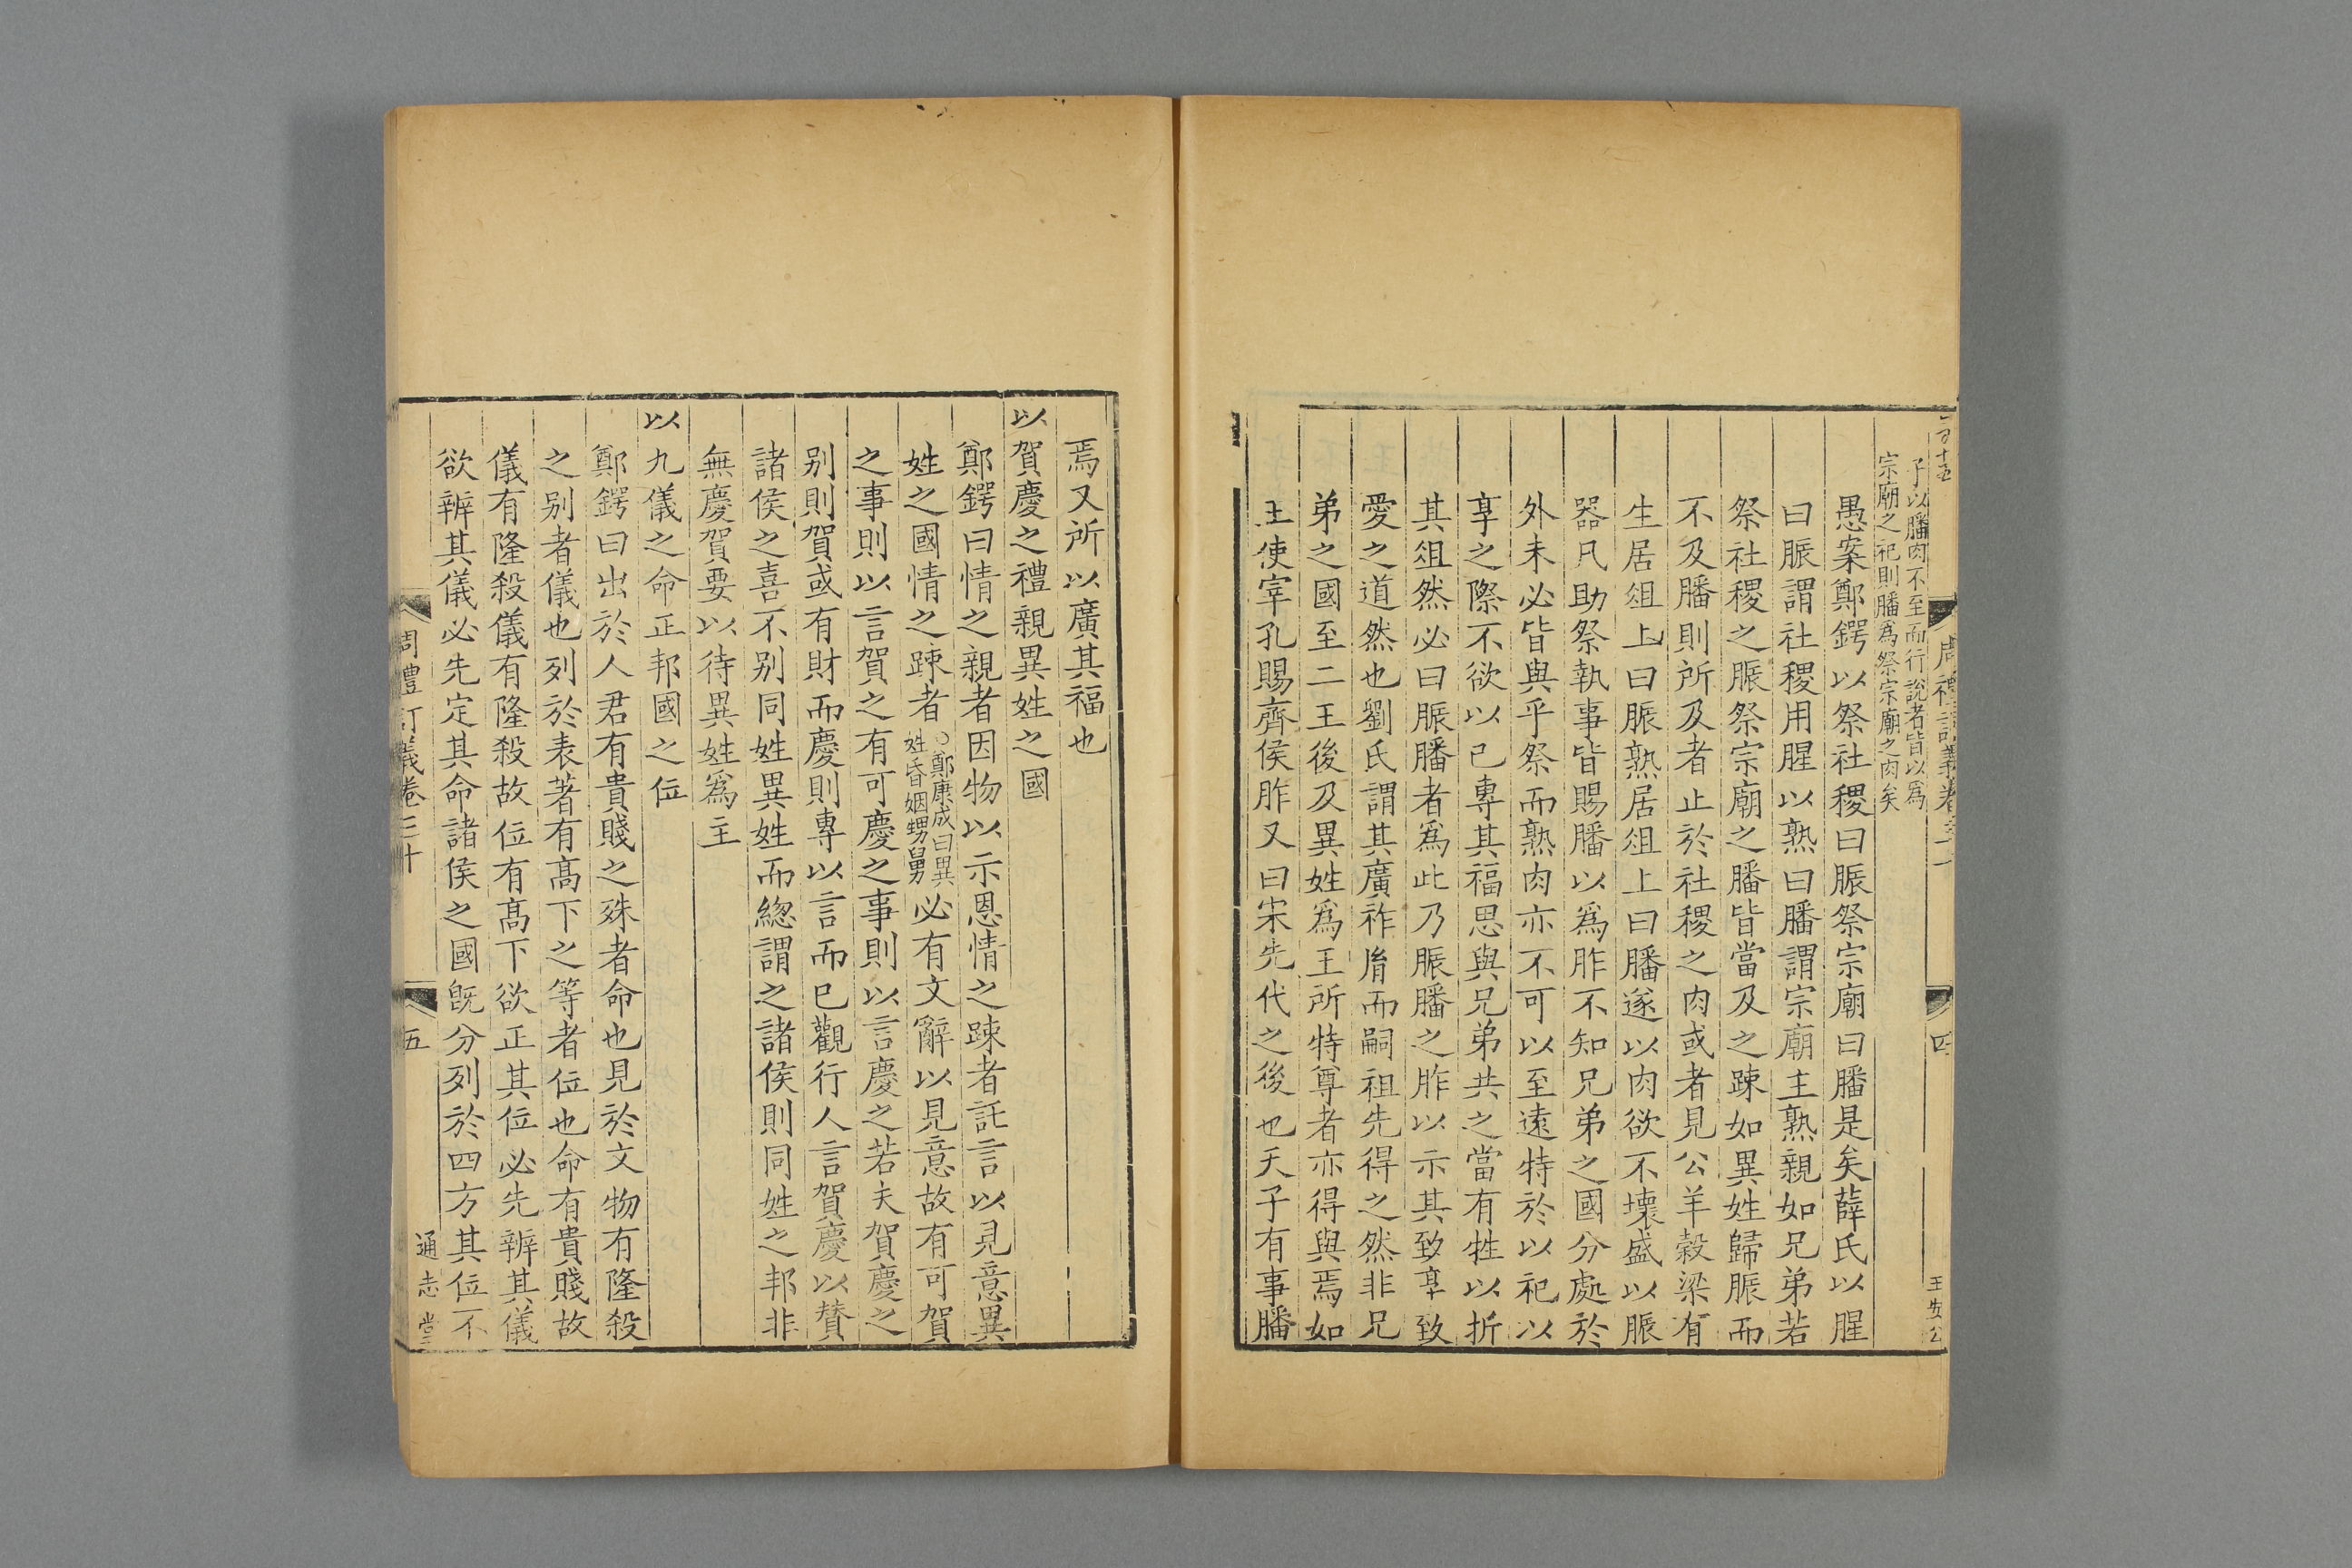 子以膰肉不至而行說者皆以爲
宗廟之祀則膰爲祭宗廟之肉矣
愚案鄭鍔以祭社稷曰脤祭宗廟曰膰是矣薛氏以腥
曰脤謂社稷用腥以熟曰膰謂宗廟主熟親如兄弟若
祭社稷之脤祭宗廟之膰皆當及之踈如異姓歸脤而
不及膰則所及者止於社稷之肉或者見公羊榖梁有
生居俎上曰脤熟居俎上曰膰遂以肉欲不壞盛以脤
器凡助祭執事皆賜膰以爲胙不知兄弟之國分處於
外未必皆與乎祭而熟肉亦不可以至遠特於以祀以
享之際不欲以已專其福思與兄弟共之當有牲以折
其俎然必曰脤膰者爲此乃脤膰之胙以示其致享致
愛之道然也劉氏謂其廣祚胤而嗣祖先得之然非兄
弟之國至二王後及異姓爲王所特尊者亦得與焉如
王使宰孔賜齊侯胙又曰宋先代之後也天子有事膰
四
王安公
焉又所以廣其福也
以賀慶之禮親異姓之國
鄭鍔曰情之親者因物以示恩情之踈者託言以見意異
姓之國情之踈者○鄭康成曰異姓昏姻甥舅必有文辭以見意故有可賀
之事則以言賀之有可慶之事則以言慶之若夫賀慶之
别則賀或有財而慶則專以言而已觀行人言賀慶以贊
諸侯之喜不别同姓異姓而緫謂之諸侯則同姓之邦非
無慶賀要以待異姓爲主
以九儀之命正邦國之位
鄭鍔曰出於人君有貴賤之殊者命也見於文物有隆殺
之别者儀也列於表著有髙下之等者位也命有貴賤故
儀有隆殺儀有隆殺故位有髙下欲正其位必先辨其儀
欲辨其儀必先定其命諸侯之國旣分列於四方其位不
周禮訂義卷三十
五
通志堂